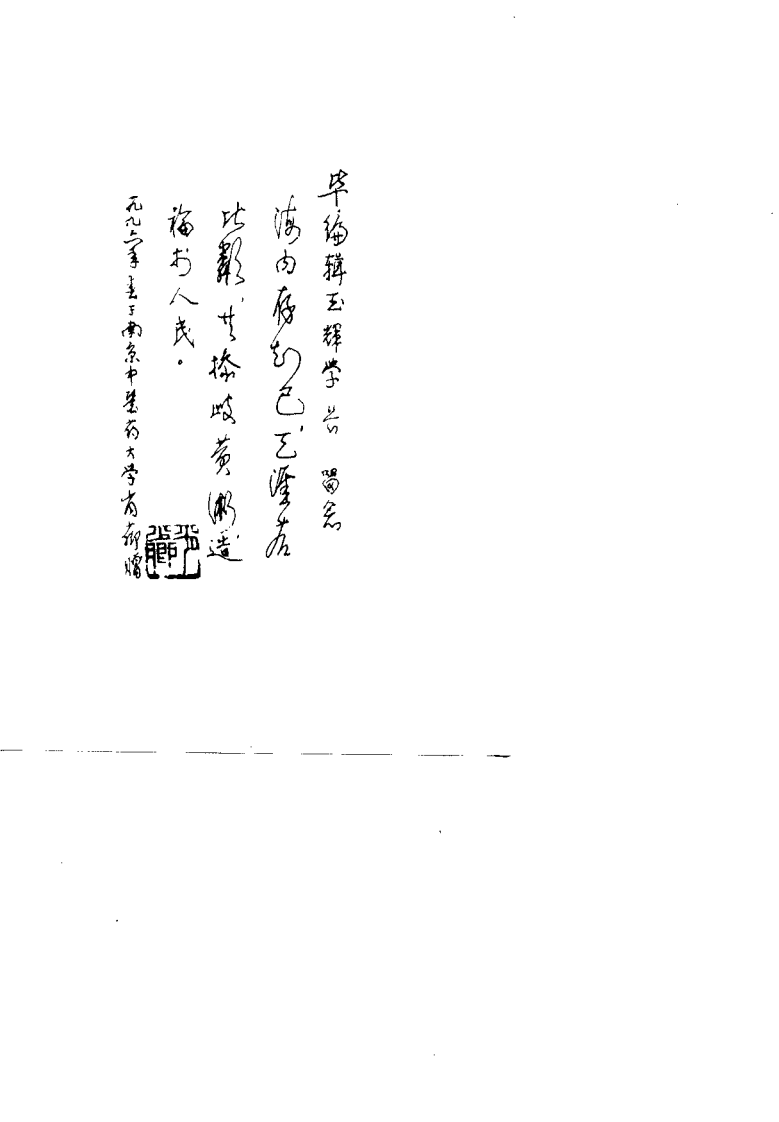 毕编辑玉辉学兄 留念
海内存知己,天涯若
比邻,共操岐黄术,造
福於人民。
一九九六年春于南京中医药大学肖 赠